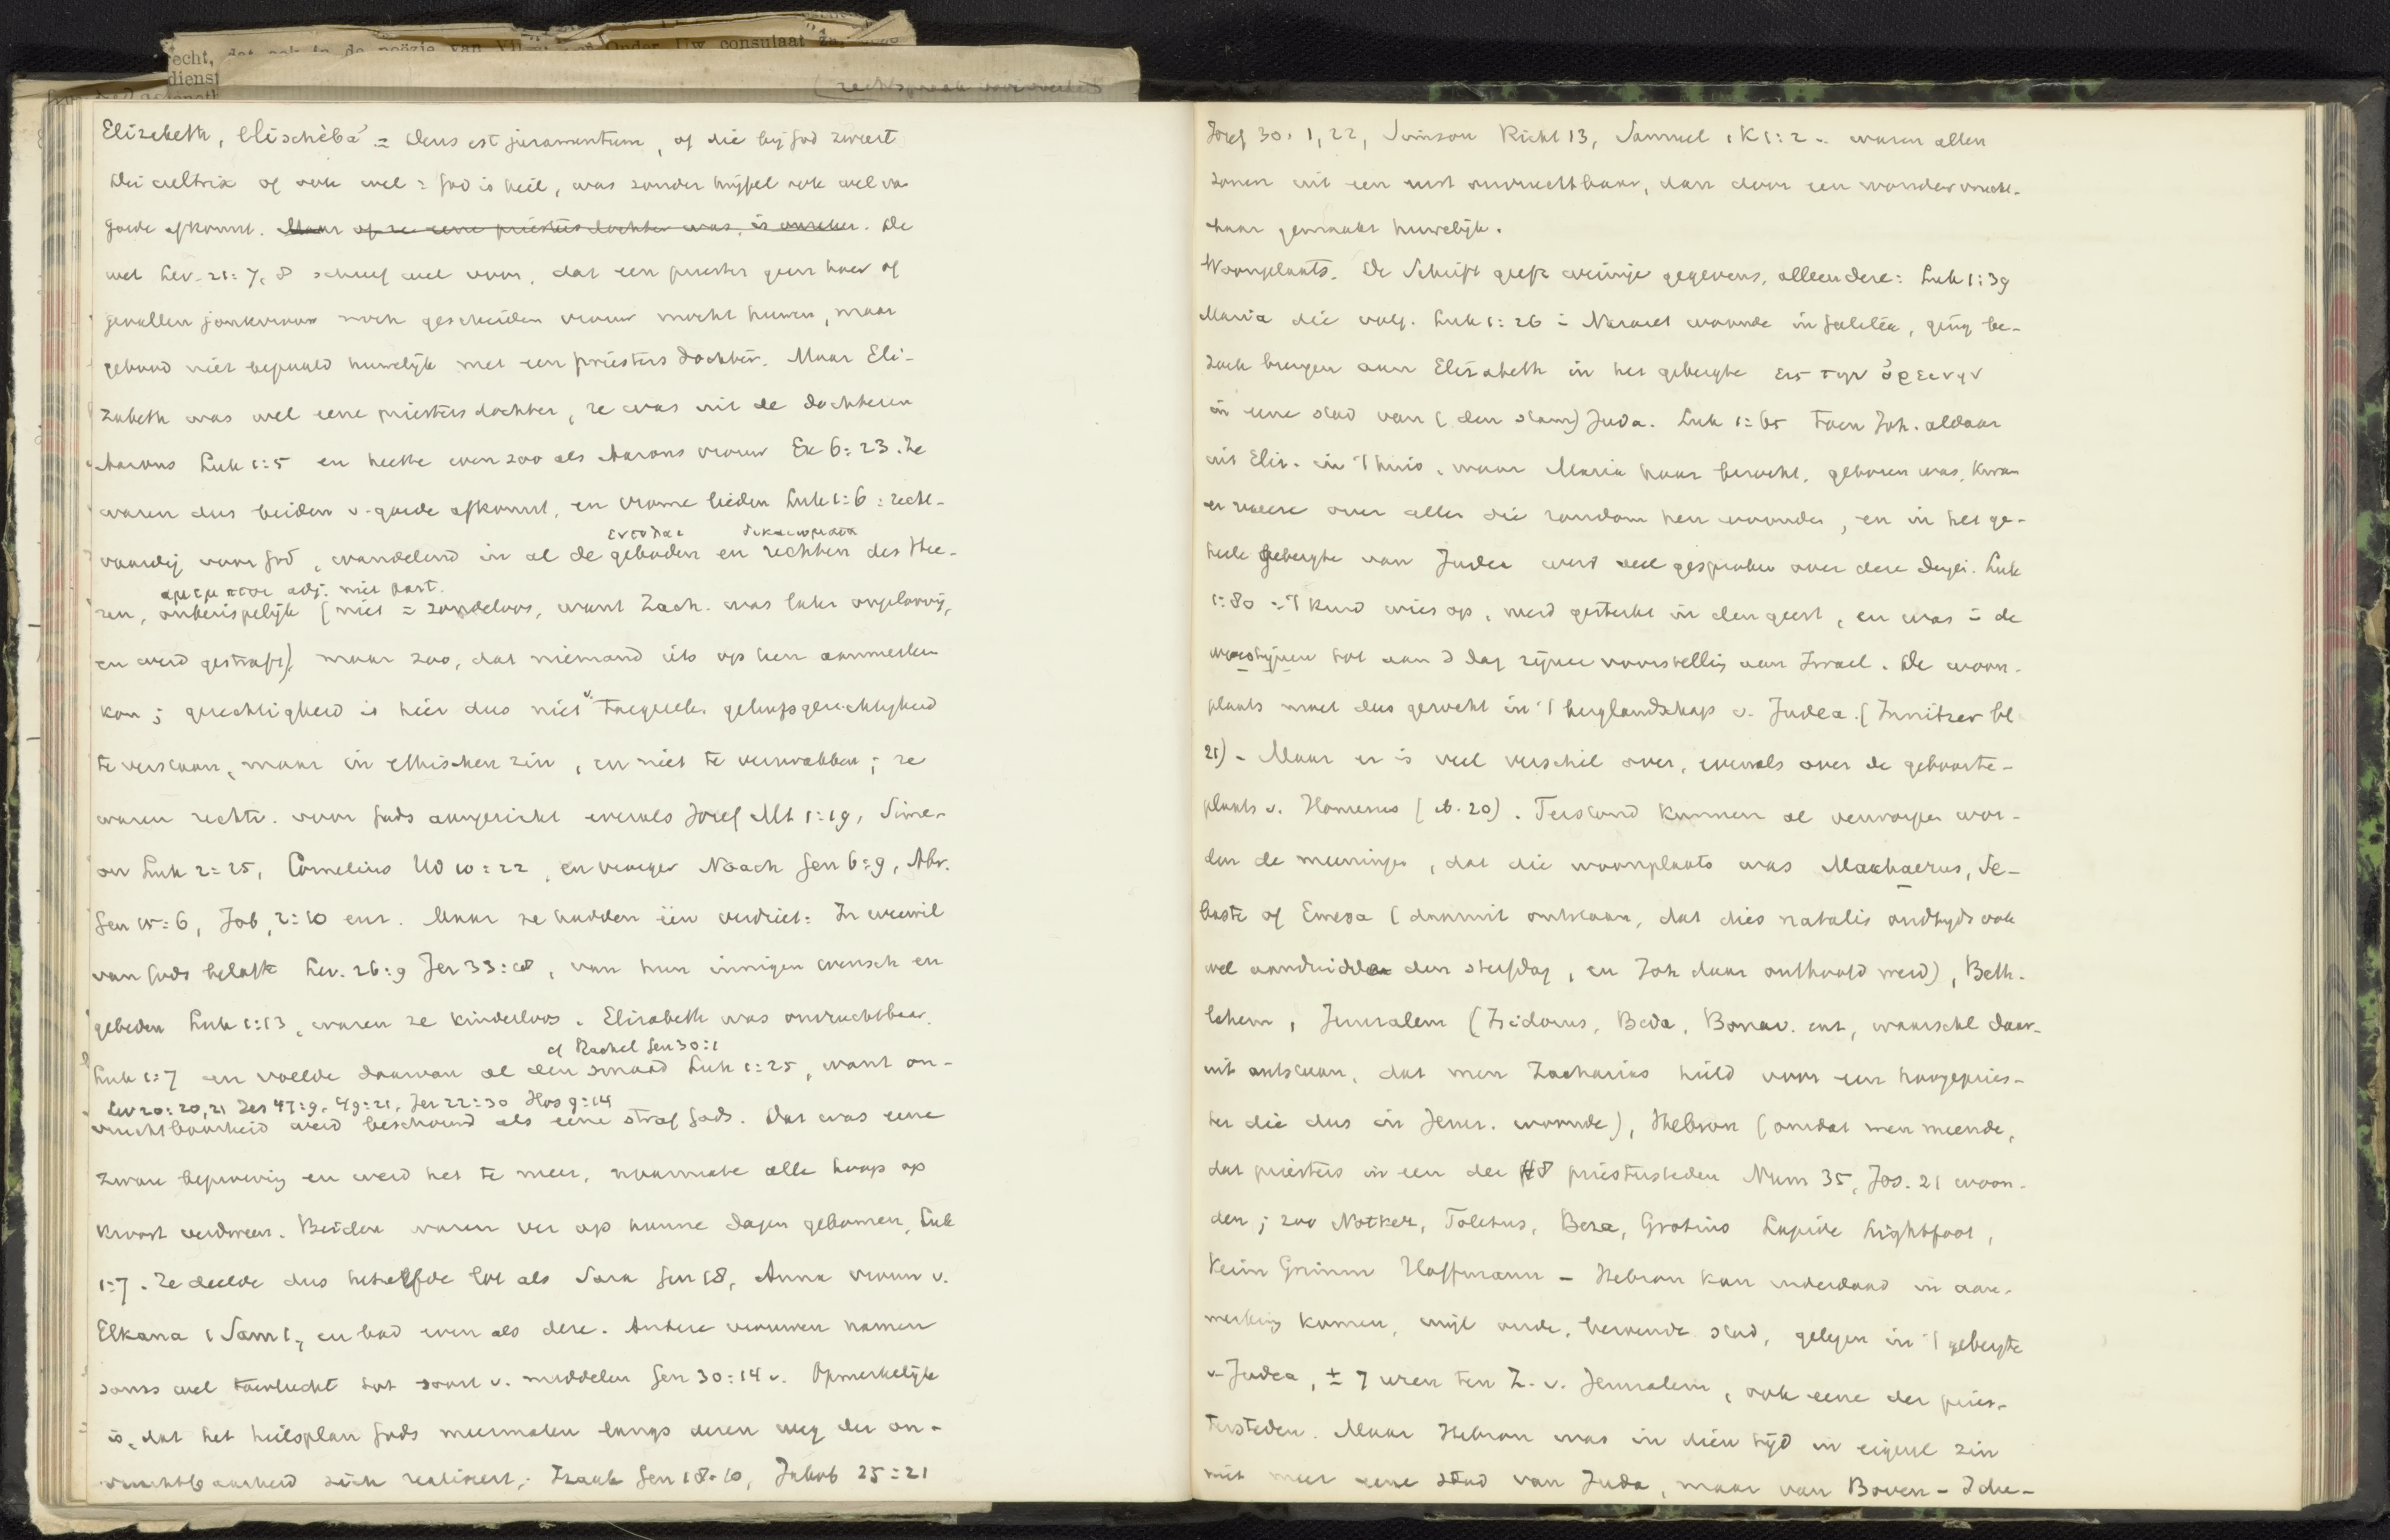 echt, dat ook in de poëzie van Onder Uw consulaat
dienst
Elizabeth, elischéba = Deus est juramentum, of die bij God zweert
Dei cultrix of ook wel = God is heil, was zonder twijfel ook wel van
goede afkomst. Maar of ze eene priestersdochter was, is onzeker. De
wet Lev. 21:7,8 schreef wel voor, dat een priester geen hoer of
gevallen jonkvrouw noch gescheiden vrouw mocht huwen, maar
gebood niet bepaald huwelijk met een priesters dochter. Maar Eli-
zabeth was wel eene priesters dochter, ze was uit de dochteren
Aarons Luk 1:5 en heette even zoo als Aarons vrouw Ex 6:23. Ze
waren dus beiden v. goede afkomst, en vrome lieden Luk 1:6: recht-
εντολαι δικαιωματα
vaardig voor God, wandelend in al de geboden en rechten des Hee-
αμεμπτοι adj. niet part.
ren, onberispelijk (niet = zondeloos, want Zach. was later ongeloovig,
en werd gestraft), maar zoo, dat niemand iets op hen aanmerken
kon; gerechtigheid is hier dus niet v. toegerek. geloofsgerechtigheid
te verstaan, maar in ethischen zin, en niet te verzwakken; ze
waren rechtv. voor Gods aangezicht evenals Jozef Mt 1:19, Sime-
on Luk 2:25, Cornelius Hd 10:22, en vroeger Noach Gen 6:9, Abr.
Gen 15:6, Job 2:10 enz. Maar ze hadden één verdriet: In weerwil
van Gods belofte Lev. 26:9 Jer 33:, van hun innigen wensch en
gebeden Luk 1:13, waren ze kinderloos. Elizabeth was onvruchtbaar.
cf Rachel Gen 30:1
Luk 1:7 en voelde daarvan al den smaad Luk 1:25, want on-
Lev 20:20,21 Jes 47:9, 49:21, Jer 22:30 Hos 9:14
vruchtbaarheid werd beschouwd als eene straf Gods. Dat was eene
zware beproeving en werd het te meer, naarmate alle hoop op
kroost verdween. Beiden waren ver op hunne dagen gekomen, Luk
1:7. Ze deelde dus hetzelfde lot als Sara Gen 18, Anna vrouw v.
Elkana 1 Sam 1, en bad even als deze. Andere vrouwen namen
soms wel toevlucht tot soort v. middelen Gen 30:14 v. Opmerkelijk
is, dat het heilsplan Gods meermalen langs dezen weg der on-
vruchtbaarheid zich realiseert; Izaak Gen 18:10, Jakob 25:21
Jozef 30:1,22, Simson Richt 13, Samuel 1 K 1:2 waren allen
zonen uit een eerst onvruchtbaar, dan door een wonder vrucht-
baar gemaakt huwelijk.
Woonplaats. De Schrift geeft weinige gegevens, alleen deze: Luk 1:39
Maria die volg. Luk 1:26 in Nazaret woonde in Galiléa, ging be-
zoek brengen aan Elizabeth in het gebergte εις την ὀρεινην
in eene stad van (den stam) Juda. Luk 1:65 Toen Joh. aldaar
uit Eliz. in 't huis, waar Maria haar bezocht, geboren was, kwam
er vreeze over allen die rondom hen woonden, en in het ge-
heele gebergte van Judea werd veel gesproken over deze dingen. Luk
1:80 't kind wies op, werd gesterkt in den geest, en was in de
woestijnen tot aan d dag zijner voorstelling aan Israel. De woon-
plaats moet dus gezocht in 't berglandschap v. Judea. (Innitzer bl
21) - Maar er is veel verschil over, evenals over de geboorte-
plaats v. Homerus (ib. 20). Terstond kunnen al verworpen wor-
den de meeningen, dat die woonplaats was Machaerus, Se-
baste of Emesa (daaruit ontstaan, dat dies natalis oudtijds ook
wel aanduidde den sterfdag, en Joh daar onthoofd werd), Beth-
lehem, Jeruzalem (Isidorus, Beda, Bonav. enz, waarschl daar-
uit ontstaan, dat men Zacharias hield voor een hoogepries-
ter die dus in Jeruz. woonde), Hebron (omdat men meende,
dat priesters in een der 48 priestersteden Num 35, Jos. 21 woon-
den; zoo Notker, Toletus, Beza, Grotius Lapide Lightfoot,
Keim Grimm Hoffmann - Hebron kan inderdaad in aan-
merking komen, wijl oude, beroemde stad, gelegen in 't gebergte
v. Judea, ± 7 uren ten Z. v. Jeruzalem, ook eene der pries-
tersteden. Maar Hebron was in dien tijd in eigenl zin
niet meer eene stad van Juda, maar van Boven-Idu-